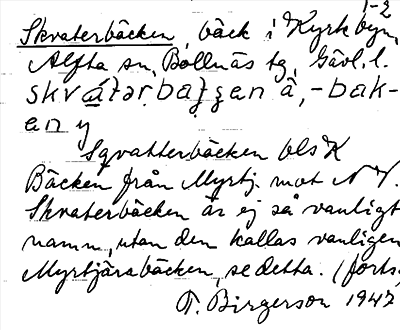 1-2
Skvaterbäcken, bäck i Kyrkbyn,
Alfta sn, Bollnäs tg, Gävl. l.
skvátər.baʒʒen â, -bak-
en y
Sqvatterbäcken bls K
Bäcken från Myrtj. mot N V.
Skvaterbäcken är ej så vanligt
namn, utan den kallas vanligen
Myrtjärabäcken, se detta. (forts.)
T. Birgerson 1947